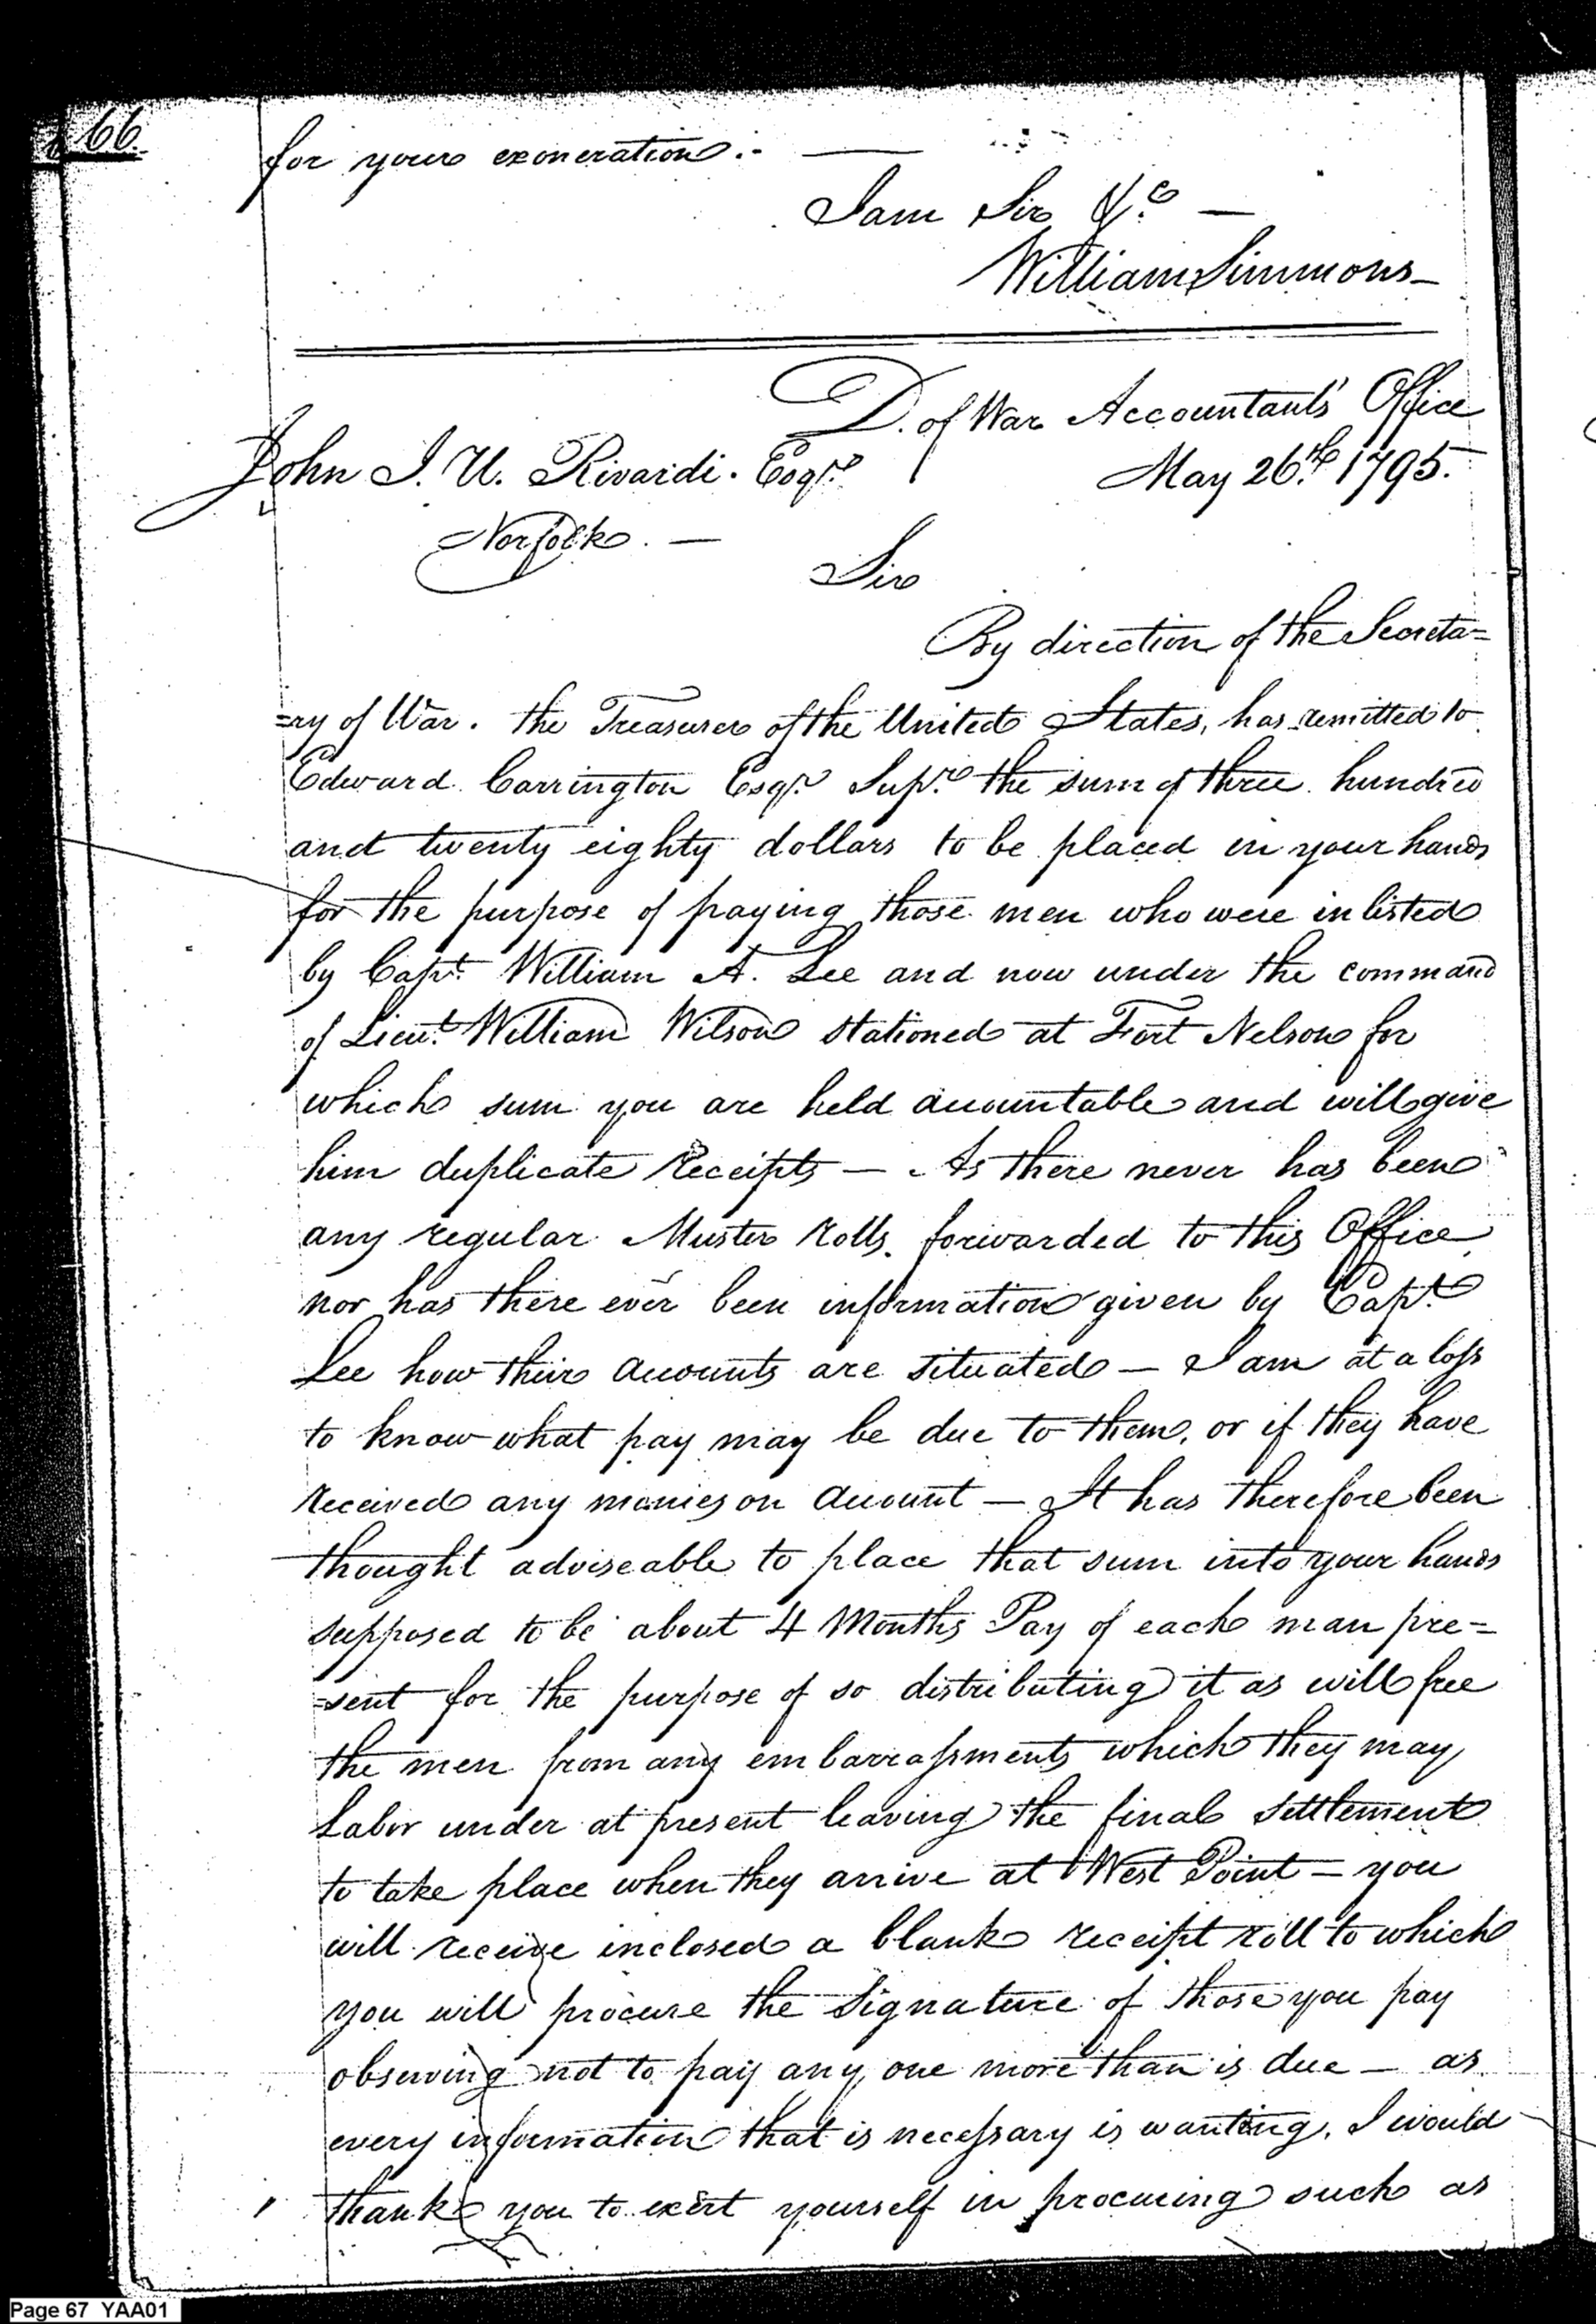 66.
for your exoneration.-
I am Sir &c.
William Simmons
D. of War Accountant's Office
John I. U. Rivardi. Esqr. May 26th 1795.
Norfolk. —
Sir
By direction of the Secreta=
=ry of War. the Treasurer of the United States, has remitted to
Edward Carrington Esqr. Supr. the sum of three hundred
and twenty eighty dollars to be placed in your hands
for the purpose of paying those men who were inlisted
by Capt. William A. Lee and now under the command
of Lieut. William Wilson stationed at Fort Nelson for
which sum you are held accountable and will give
him duplicate Receipts — As there never has been
any regular Muster Rolls forwarded to this Office
nor has there ever been information given by Capt.
Lee how their accounts are situated — I am at a loss
to know what pay may be due to them, or if they have
received any monies on account — It has therefore been
thought adviseable to place that sum into your hands
supposed to be about 4 Months Pay of each man pre=
=sent for the purpose of so distributing it as will free
the men from any embarrassments which they may
Labor under at present leaving the final settlement
to take place when they arrive at West Point = you
will receive inclosed a blank receipt roll to which
you will procure the Signature of those you pay
observing not to pay any one more than is due — as
every information that is necessary is wanting, I would
thank you to exert yourself in procuring such as
Page 67 YAA01